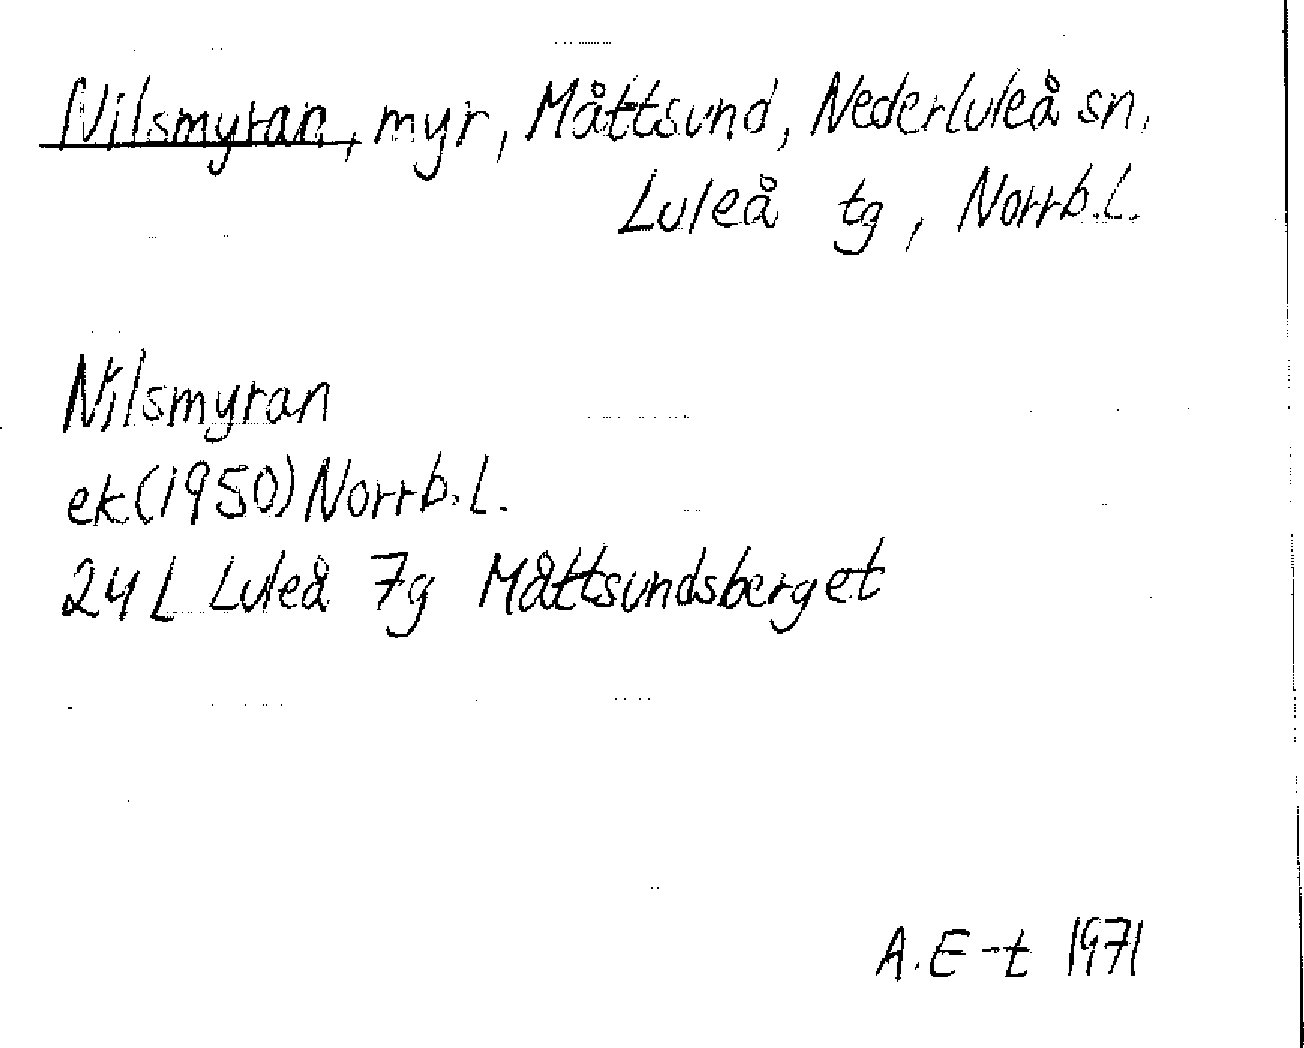 Nilsmyran, myr, Måttsund, Nederluleå sn,
Luleå tg, Norrb.l.
Nilsmyran
ek(1950)Norrb.l.
24 L Luleå 7g Måttsundsberget
A.E-t 1971